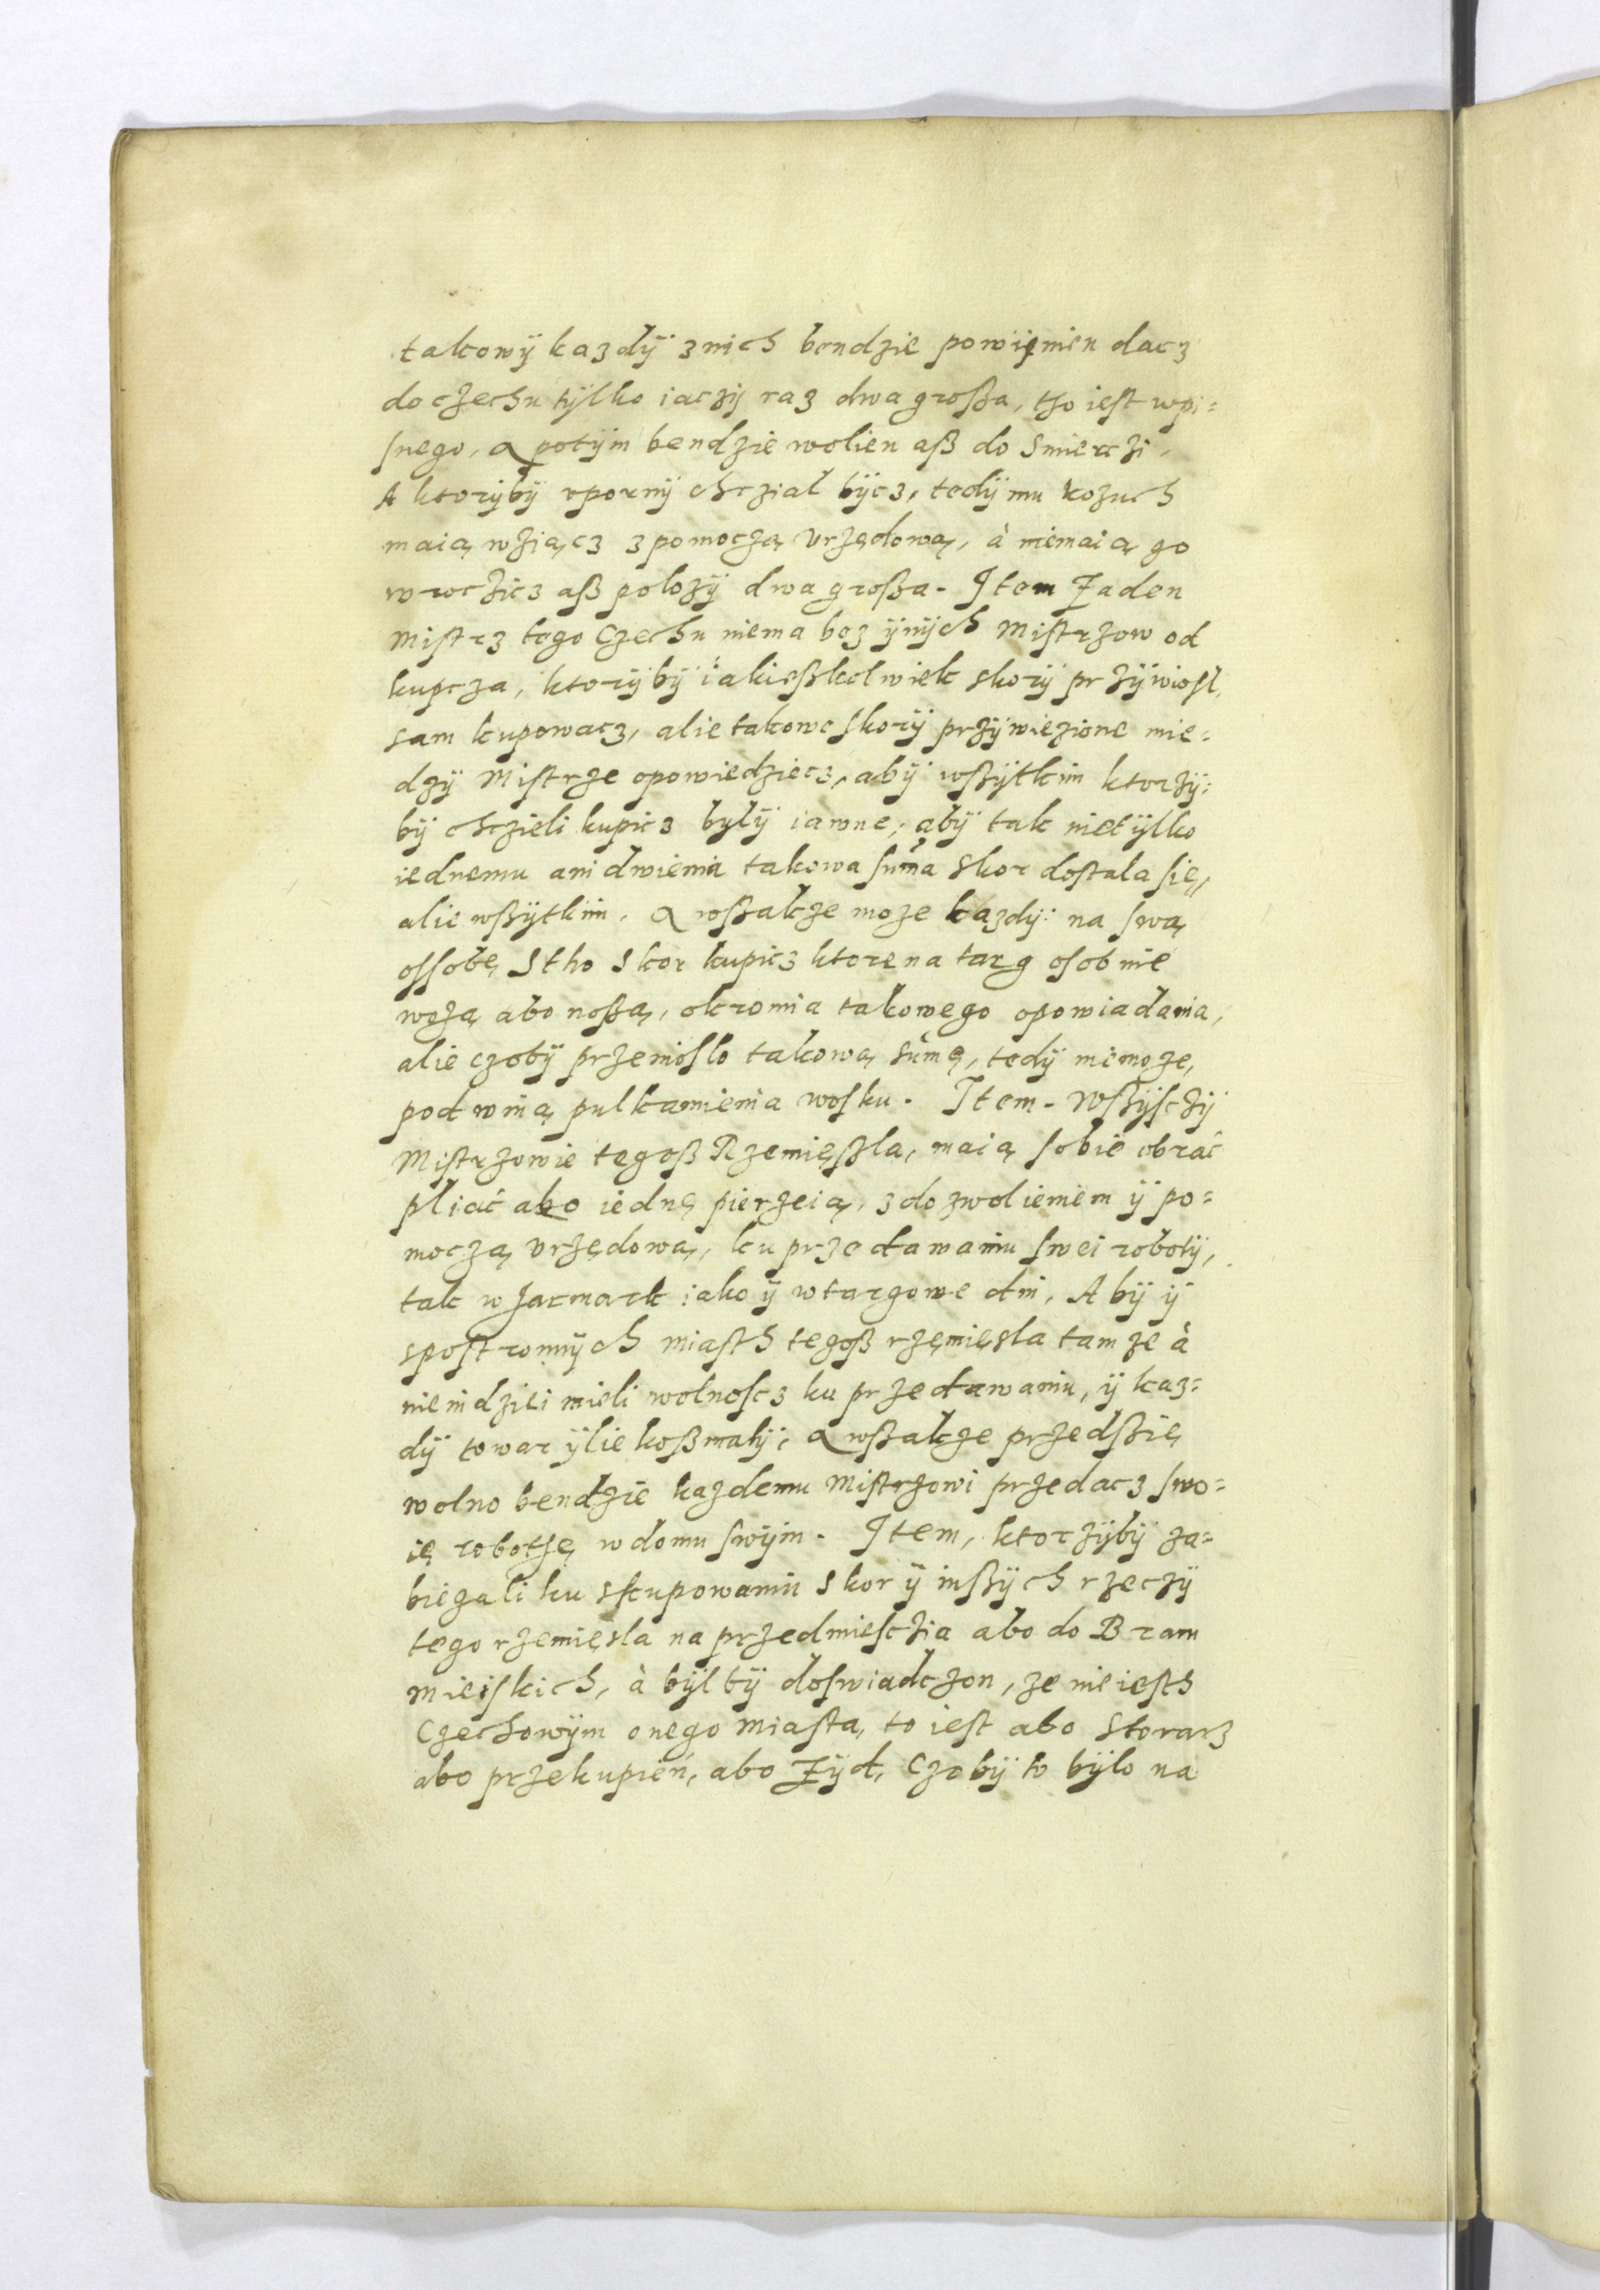 takowÿ kazdÿ znich bendzie powięnien dacz
do czechu tÿlko iaczÿ raz dwa großa, tho iest wpi=
snego, a potÿm bendzie wolien aß do Smierczi.
A ktorÿbÿ vpornÿ chczial bÿcz, tedÿ mu kozuch
maią wziącz z pomoczą Vrzędową, à niemaią go
wroczicz aß położÿ dwa großa. Item Żaden
Mistrz tego Czechu niema bez ÿnÿch Mistrzow od
kupcza, ktorÿbÿ iakießkolwiek skorÿ przÿwiosl,
sam kupowacz, alie takowe skorÿ przÿwiezione mie=
dzÿ Mistrze opowiedziecz, abÿ wßÿtkim ktorzÿ=
bÿ chczieli kupicz bÿlÿ iawne, abÿ tak nietÿlko
iednemu ani dwiema takowa suma Skor dostala się,
alie wßÿtkim. a wßakze moze kazdÿ na swą
ossobę Stho Skor kupicz ktore na targ osobnie
wożą abo noßą, okromia takowego opowiadania,
alie czobÿ przeniosło takową sumę, tedÿ niemoże,
pod winą pulkamienia wosku. Item. Wßÿsczÿ
Mistrzowie tegoß Rzemięßla, maią sobie obrać
pliać abo iednę pierzeią, z dozwolieniem ÿ po=
moczą Vrzędową, ku przedawaniu swei robotÿ,
tak w Jarmark iako ÿ w targowe dni, Abÿ ÿ
spostronnÿch miasth tegoß rzęmięsla tamze à
nie indziei mieli wolnoscz ku przedawaniu, ÿ kaz=
dÿ towar ÿlie koßmatÿ, a wßakze przedsię
wolno bendzie kazdemu Mistrzowi przedacz swo=
ię robothę w domu swÿm. Item, ktorzÿbÿ za=
biegali ku skupowaniu Skor ÿ inßÿch rzeczÿ
tego rzemięsla na przedmiesczia abo do Bram
Mieiskich, à bÿlbÿ doswiadczon, ze nie iesth
Czechowÿm onego Miasta, to iest abo Skorarz
abo przekupień, abo Żÿd, Czobÿ to bÿlo na